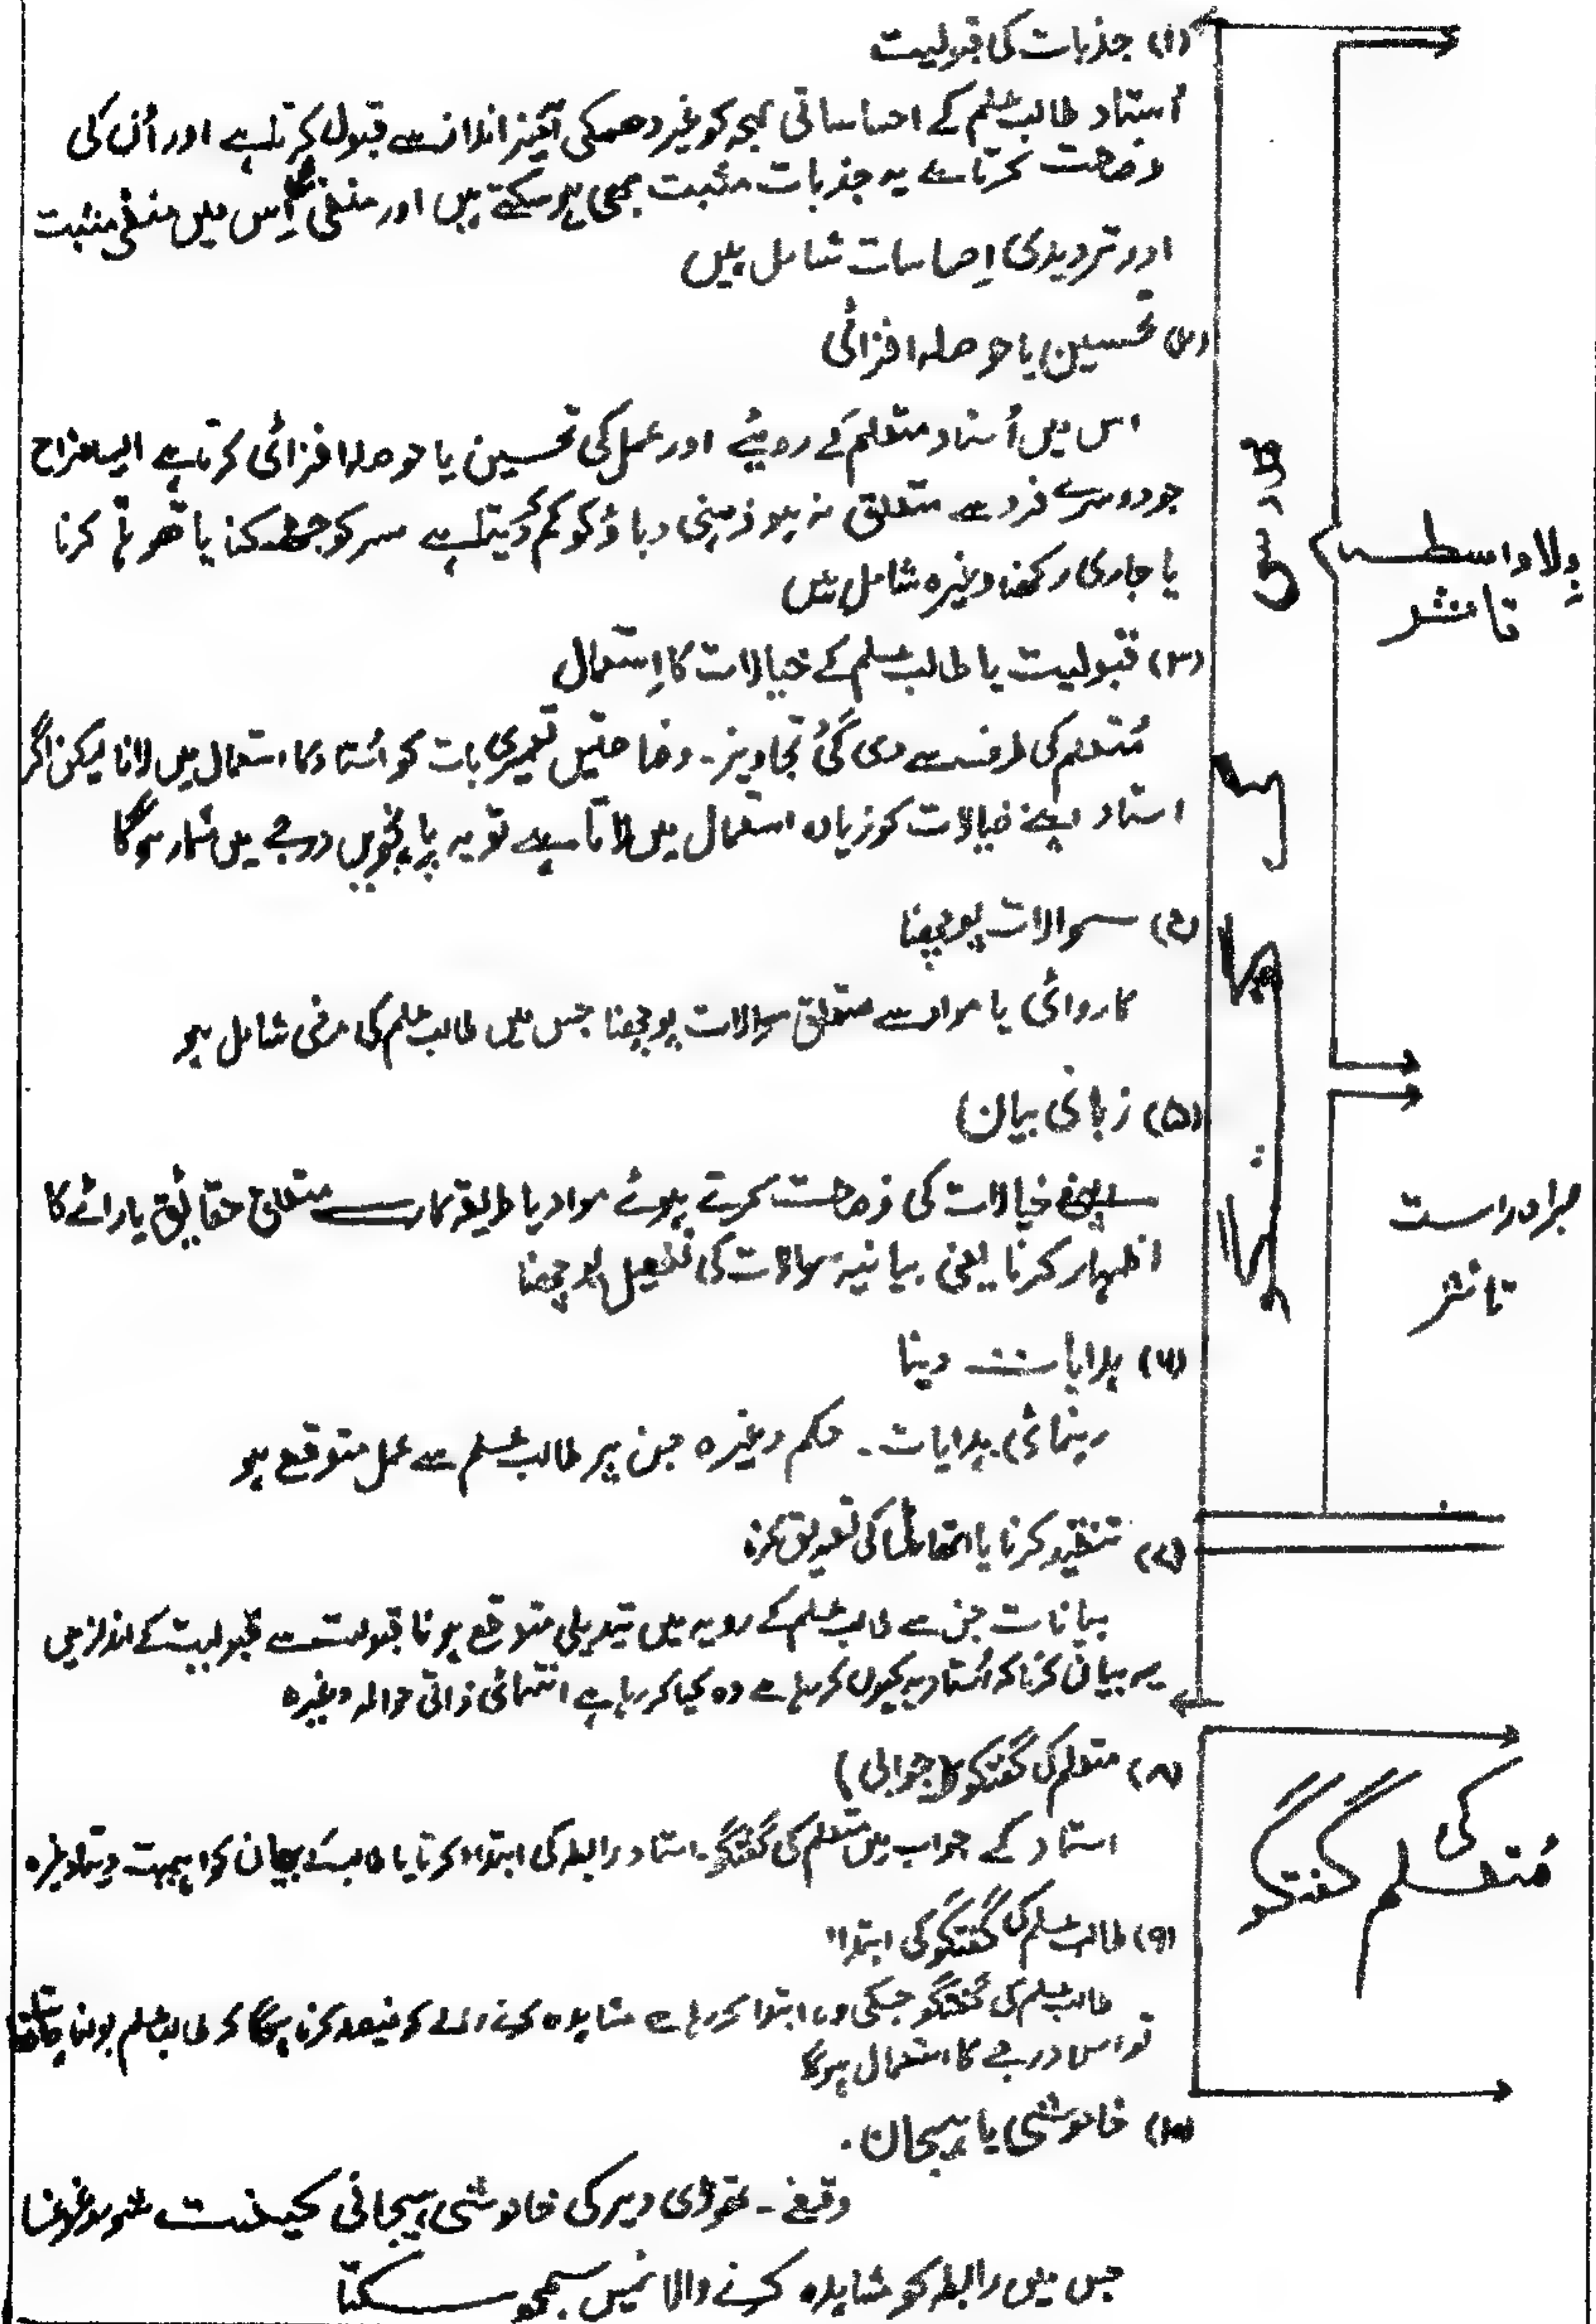 (۱) جذبات کی قبولیت
اُستاد طالب علم کے احساساتی لہجہ کو غیر دھمکی آمیز انداز سے قبول کرتا ہے اور اُن کی
وضاحت کرتا ہے یہ جذبات مثبت بھی ہو سکتے ہیں اور منفی بھی اِس میں منفی مثبت
اور تردیدی اِحساسات شامل ہیں
(۲) تحسین یا حوصلہ افزائی
اس میں اُستاد متعلم کے رویئے اور عمل کی تحسین یا حوصلہ افزائی کرتا ہے ایسا مزاح
جو دوسرے فرد سے متعلق نہ ہو ذہنی دباؤ کو کم کر دیتا ہے سر کو جھٹکنا یا کرنا
یا جاری رکھنا وغیرہ شامل ہیں
(۳) قبولیت یا طالب علم کے خیالات کا اِستعمال
مُتعلم کی طرف سے دی گئی تجاویز۔ وضاحتیں تعمیری بات کو اُستاد کا استعمال میں لانا لیکن اگر
استاد اپنے خیالات کو زیادہ استعمال میں لاتا ہے تو یہ پانچویں درجے میں شمار ہوگا
(۴) سوالات پوچھنا
کاروائی یا مواد سے متعلق سوالات پوچھنا جس میں طالب علم کی مرضی شامل ہو
(۵) زبانی بیان
اپنے خیالات کی وضاحت کرتے ہوئے مواد یا طریقہ کار سے متعلق حقائق یا رائے کا
اظہار کرنا یعنی بیانیہ سوالات کی تفصیل پوچھنا
(۶) ہدایات دینا
رہنمائی ہدایات۔ حکم وغیرہ جن پر طالب علم سے عمل متوقع ہو
(۷) تنقید کرنا یا کی تصدیق کرنا
بیانات جن سے طالب علم کے رویہ میں تبدیلی متوقع ہو نا قبولیت سے قبولیت کے انداز میں
یہ بیان کرنا کہ اُستاد یہ کیوں کر رہا ہے وہ کیا کر رہا ہے انتہائی ذاتی حوالہ وغیرہ
(۸) متعلم کی گفتگو (جوابی)
استاد کے جواب میں متعلم کی گفتگو۔ استاد رابطہ کی ابتداء کرتا یا طالب کے بیان کو اہمیت دیتا
(۹) طالب علم کی گفتگو کی ابتداء
طالب علم کی گفتگو جسکی وہ ابتدا کر رہا ہے مشاہدہ کرنے والے کو فیصلہ کرنا ہوگا کہ طالب علم بولنا چاہتا
تو اس درجے کا استعمال ہوگا
(۱۰) خاموشی یا ہیجان۔
وقفے۔ تھوڑی دیر کی خاموشی ہیجانی کیفیت
جس میں رابطہ کو مشاہدہ کرنے والا نہیں سمجھ سکتا
بِلا واسطہ
تاثر
براہ راست
تاثر
مُتعلم کی گفتگو